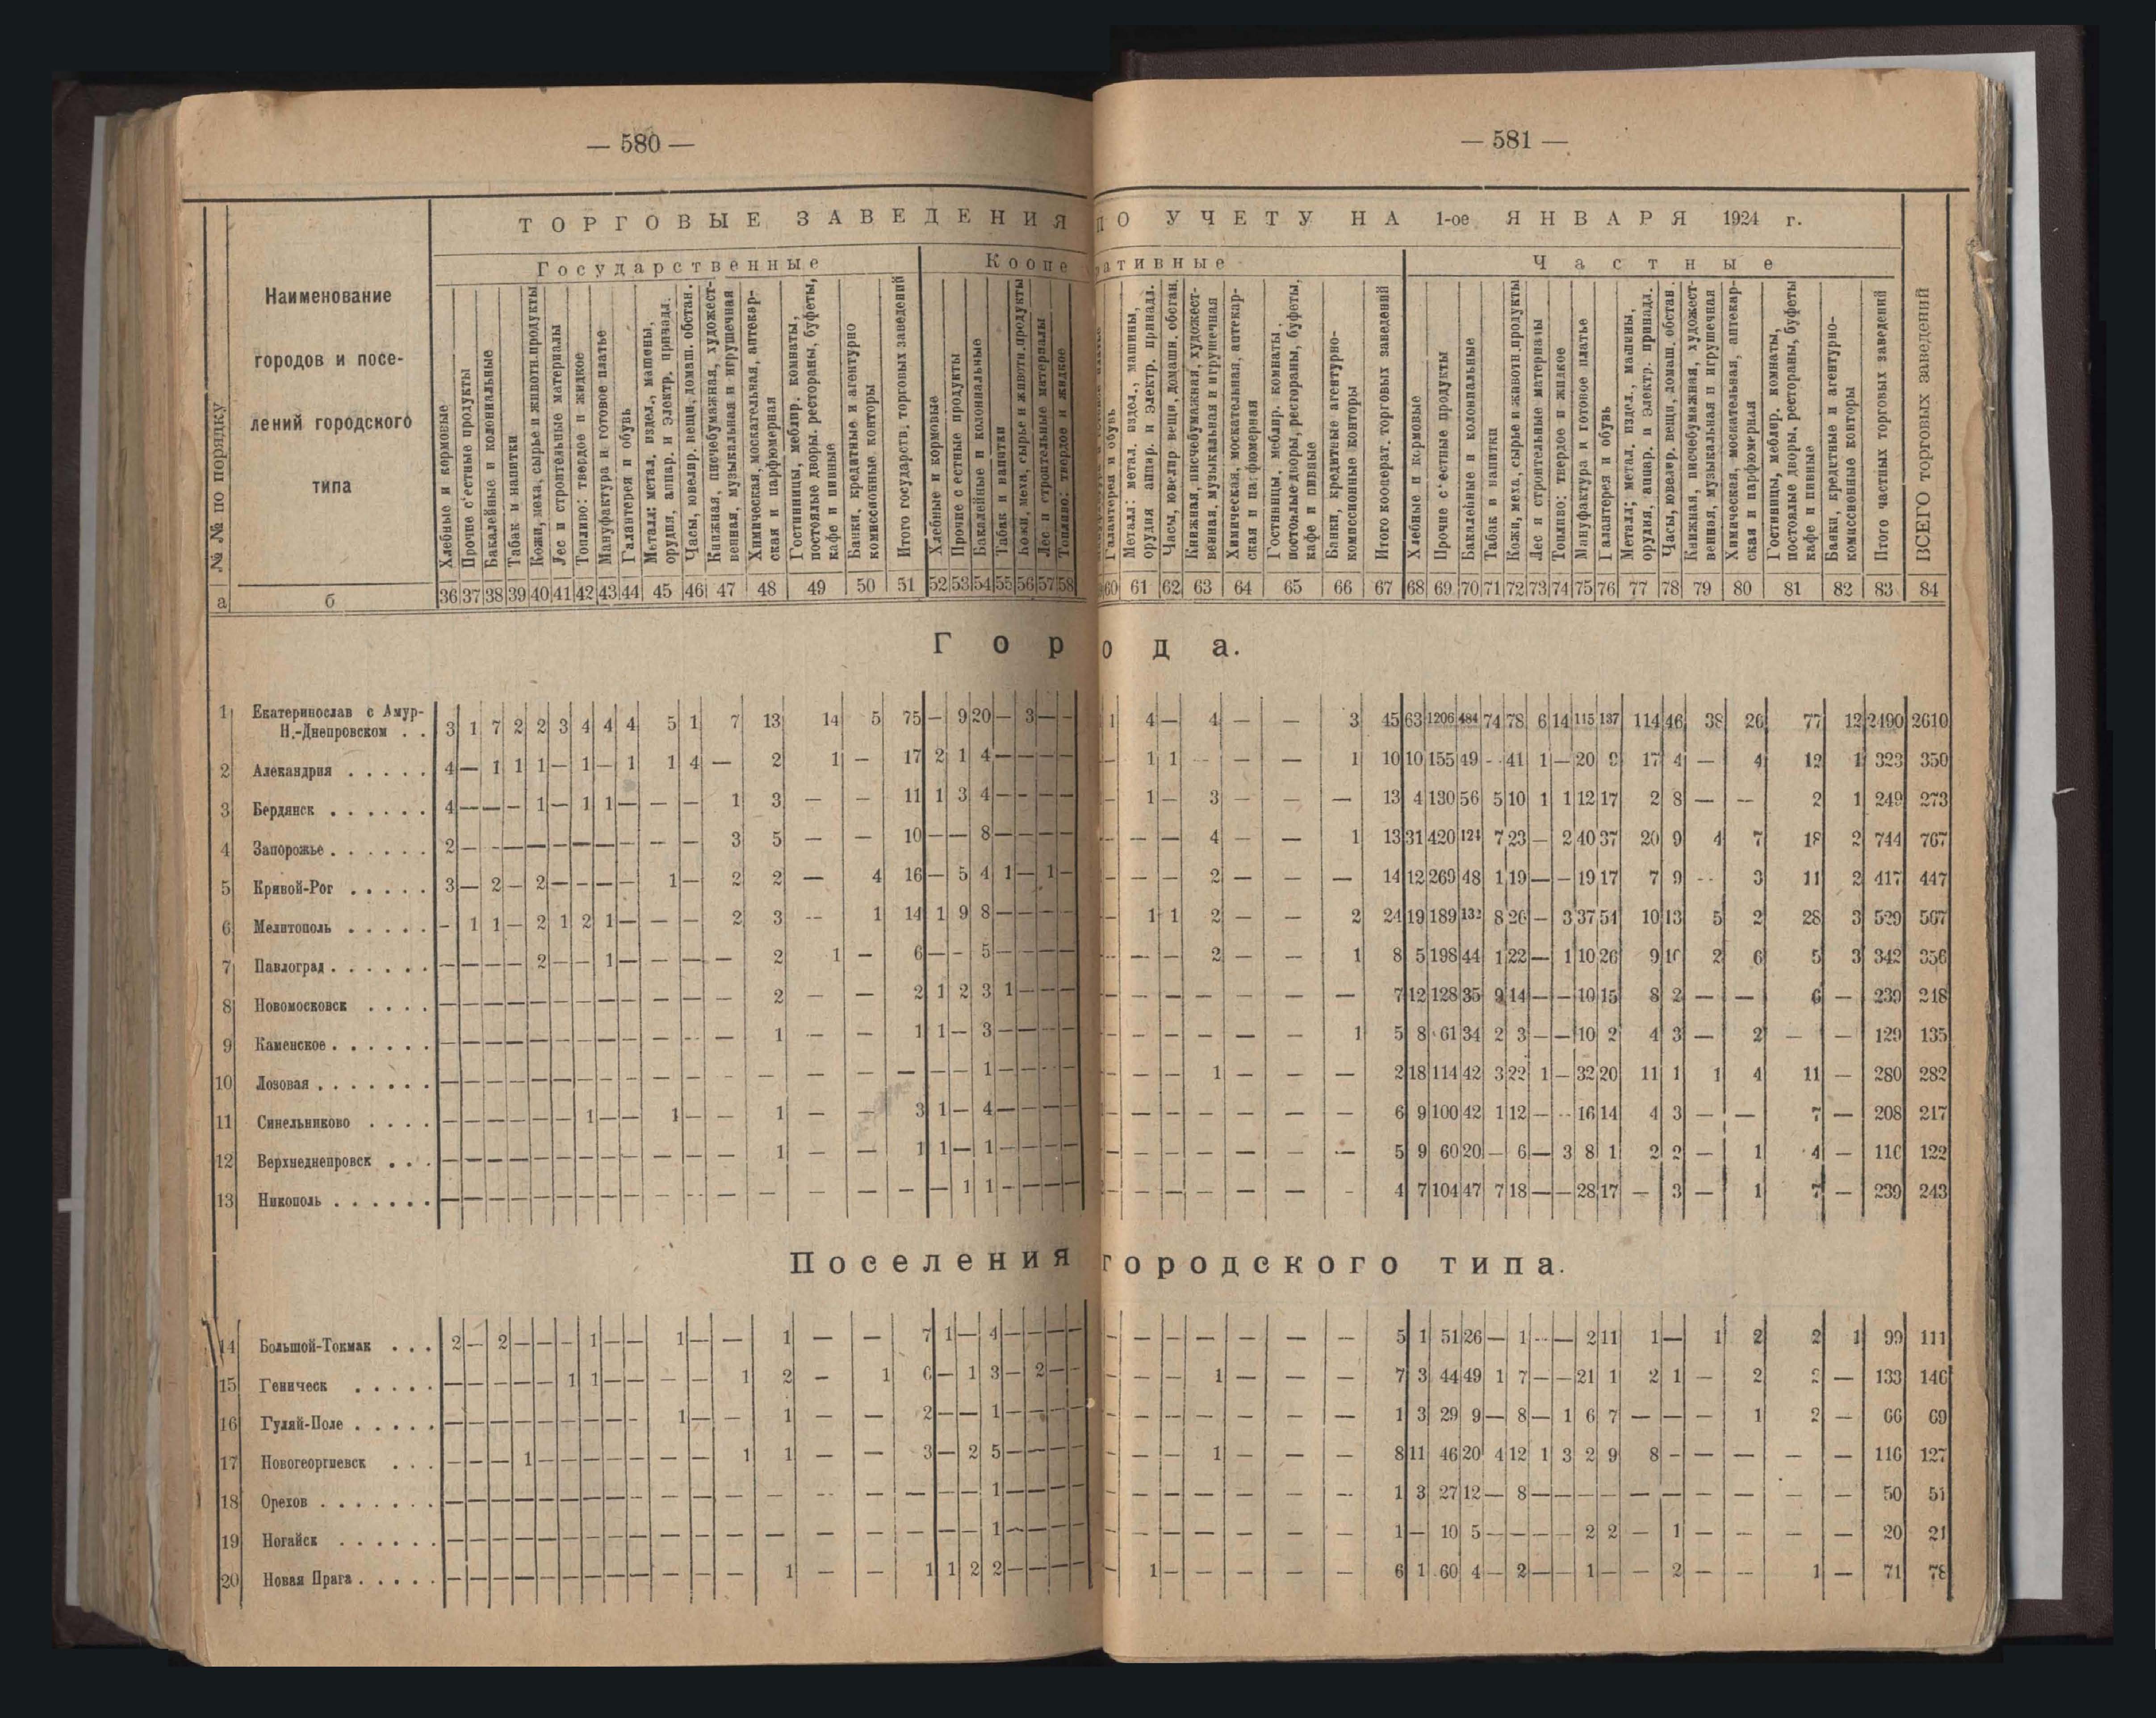 — 580 —
ТОРГОВЫЕ ЗАВЕДЕНИЯ
Государственные
Коопе
№ № по порядку
Наименование
городов и посе-
лений городского
типа
Хлебные и кормовые
Прочие с'естные продукты
Бакалейные и колониальные
Табак и напитки
Кожи, меха, сырье и животн. продукты
Лес и строительные материалы
Топливо: твердое и жидкое
Мануфактура и готовое платье
Галантерея и обувь
Металл: метал. издел., машины,
орудия, аппар. и электр. принадл.
Часы, ювелир. вещи, домаш. обстан.
Книжная, писчебумажная, художест-
венная, музыкальная и игрушечная
Химическая, москательная, аптекар-
ская и парфюмерная
Гостинницы, меблир. комнаты,
постоялые дворы, рестораны, буфеты,
кафе и пивные
Банки, кредитные и агентурно
комиссионные конторы
Итого государств. торговых заведений
Хлебные и кормовые
Прочие с'естные продукты
Бакалейные и колониальные
Табак и напитки
Кожи, меха, сырье и животн. продукты
Лес и строительные материалы
Топливо: твердое и жидкое
а б 36 37 38 39 40 41 42 43 44 45 46 47 48 49 50 51 52 53 54 55 56 57 58
Гор
1 Екатеринослав с Амур-
Н.-Днепровском . . 3 1 7 2 2 3 4 4 4 5 1 7 13 14 5 75 — 9 20 — 3 — —
2 Алекандрия . . . . . 4 — 1 1 1 — 1 — 1 1 4 — 2 1 — 17 2 1 4 — — — —
3 Бердянск . . . . . . 4 — — — 1 — 1 1 — — — 1 3 — — 11 1 3 4 — — — —
4 Запорожье . . . . . . 2 — — — — — — — — — — 3 5 — — 10 — — 8 — — — —
5 Кривой-Рог . . . . . 3 — 2 — 2 — — — — 1 — 2 2 — 4 16 — 5 4 1 — 1 —
6 Мелитополь . . . . . — 1 1 — 2 1 2 1 — — — 2 3 — 1 14 1 9 8 — — — —
7 Павлоград . . . . . . — — — — 2 — — 1 — — — — 2 1 — 6 — — 5 — — — —
8 Новомосковск . . . . — — — — — — — — — — — — 2 — — 2 1 2 3 1 — — —
9 Каменское . . . . . . — — — — — — — — — — — — 1 — — 1 1 — 3 — — — —
10 Лозовая . . . . . . . — — — — — — — — — — — — — — — — — — 1 — — — —
11 Синельниково . . . . — — — — — — 1 — — 1 — — 1 — — 3 1 — 4 — — — —
12 Верхнеднепровск . . . — — — — — — — — — — — — 1 — — 1 1 — 1 — — — —
13 Никополь . . . . . . — — — — — — — — — — — — — — — — — 1 1 — — — —
Поселения
14 Большой-Токмак . . . 2 — 2 — — — 1 — — 1 — — 1 — — 7 1 — 4 — — — —
15 Геническ . . . . . — — — — — 1 1 — — — — 1 2 — 1 6 — 1 3 — 2 — —
16 Гуляй-Поле . . . . . — — — — — — — — — 1 — — 1 — — 2 — — 1 — — — —
17 Новогеоргиевск . . . — — — 1 — — — — — — — 1 1 — — 3 — 2 5 — — — —
18 Орехов . . . . . . . — — — — — — — — — — — — — — — — — — 1 — — — —
19 Ногайск . . . . . . — — — — — — — — — — — — — — — — — — 1 — — — —
20 Новая Прага . . . . . — — — — — — — — — — — — 1 — — 1 1 2 2 — — — —
— 581 —
ПО УЧЕТУ НА 1-ое ЯНВАРЯ 1924 г.
ративные
Частные
Галантерея и обувь
Металл: метал. издел., машины,
орудия аппар. и электр. принадл.
Часы, ювелир вещи, домашн. обстан.
Книжная, писчебумажная, художест-
венная, музыкальная и игрушечная
Химическая, москательная, аптекар-
ская и парфюмерная
Гостиницы, меблир. комнаты,
постоялые дворы, рестораны, буфеты,
кафе и пивные
Банки, кредитные агентурно-
комиссионные конторы
Итого кооперат. торговых заведений
Хлебные и кормовые
Прочие с'естные продукты
Бакалейные и колониальные
Табак и напитки
Кожи, меха, сырье и животн. продукты
Лес и строительные материалы
Топливо: твердое и жидкое
Мануфактура и готовое платье
Галантерея и обувь
Металл; метал. издел., машины,
орудия, аппар. и электр. принадл.
Часы, ювелир. вещи, домаш. обстан.
Книжная, писчебумажная, художест-
венная, музыкальная и игрушечная
Химическая, москательная, аптекар-
ская и парфюмерная
Гостинницы, меблир. комнаты,
постоялые дворы, рестораны, буфеты
кафе и пивные
Банки, кредитные и агентурно-
комиссионные конторы
Итого частных торговых заведений
ВСЕГО торговых заведений
60 61 62 63 64 65 66 67 68 69 70 71 72 73 74 75 76 77 78 79 80 81 82 83 84
ода.
1 4 — 4 — — 3 45 63 1206 484 74 78 6 14 115 137 114 46 38 26 77 12 2490 2610
— 1 1 — — — 1 10 10 155 49 — 41 1 — 20 9 17 4 — 4 12 1 323 350
— 1 — 3 — — — 13 4 130 56 5 10 1 1 12 17 2 8 — — 2 1 249 273
— — — 4 — — 1 13 31 420 124 7 23 — 2 40 37 20 9 4 7 18 2 744 767
— — — 2 — — — 14 12 269 48 1 19 — — 19 17 7 9 — 3 11 2 417 447
— 1 1 2 — — 2 24 19 189 132 8 26 — 3 37 51 10 13 5 2 28 3 529 567
— — — 2 — — 1 8 5 198 44 1 22 — 1 10 26 9 10 2 6 5 3 342 356
— — — — — — — 7 12 128 35 9 14 — — 10 15 8 2 — — 6 — 239 218
— — — — — — 1 5 8 61 34 2 3 — — 10 2 4 3 — 2 — — 129 135
— — — 1 — — — 2 18 114 42 3 22 1 — 32 20 11 1 1 4 11 — 280 282
— — — — — — — 6 9 100 42 1 12 — — 16 14 4 3 — — 7 — 208 217
— — — — — — — 5 9 60 20 — 6 — 3 8 1 2 2 — 1 4 — 116 122
— — — — — — 4 7 104 47 7 18 — — 28 17 — 3 — 1 7 — 239 243
городского типа.
— — — — — — — 5 1 51 26 — 1 — — 2 11 1 — 1 2 2 1 99 111
— — — 1 — — — 7 3 44 49 1 7 — — 21 1 2 1 — 2 2 — 133 146
— — — — — — — 1 3 29 9 — 8 — 1 6 7 — — — 1 2 — 66 69
— — — 1 — — — 8 11 46 20 4 12 1 3 2 9 8 — — — — — 116 127
— — — — — — — 1 3 27 12 — 8 — — — — — — — — — — 50 51
— — — — — — — 1 — 10 5 — — — — 2 2 — 1 — — — — 20 21
— 1 — — — — — 6 1 60 4 — 2 — — 1 — — 2 — — 1 — 71 78